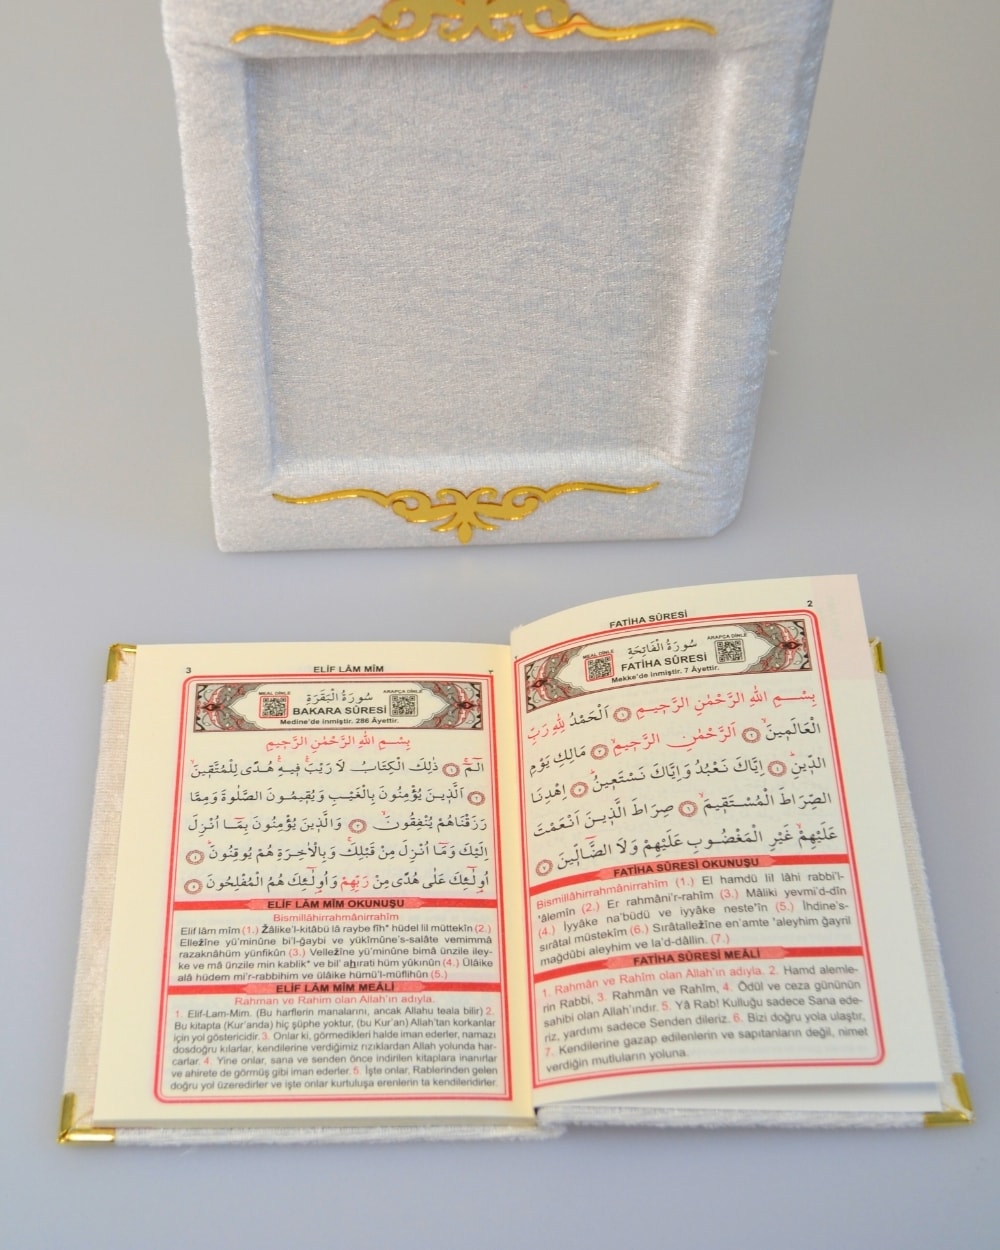 FATİHA SÛRESİ
2
MEAL DİNLE
سُورَةُ الْفَاتِحَةِ
ARAPÇA DİNLE
FATİHA SÛRESİ
Mekke'de inmiştir. 7 Âyettir.
بِسْمِ اللهِ الرَّحْمٰنِ الرَّحٖيمِ ١ اَلْحَمْدُ لِلّٰهِ رَبِّ
الْعَالَمٖينَۙ ٢ اَلرَّحْمٰنِ الرَّحٖيمِۙ ٣ مَالِكِ يَوْمِ
الدّٖينِؕ ٤ اِيَّاكَ نَعْبُدُ وَاِيَّاكَ نَسْتَعٖينُؕ ٥ اِهْدِنَا
الصِّرَاطَ الْمُسْتَقٖيمَۙ ٦ صِرَاطَ الَّذٖينَ اَنْعَمْتَ
عَلَيْهِمْۙ غَيْرِ الْمَغْضُوبِ عَلَيْهِمْ وَلَا الضَّٓالّٖينَ ٧
FATİHA SÛRESİ OKUNUŞU
Bismillâhirrahmânirrahîm (1.) El hamdü lil lâhi rabbi'l-
'âlemîn (2.) Er rahmâni'r-rahîm (3.) Mâliki yevmi'd-dîn
(4.) İyyâke na'büdü ve iyyâke neste'în (5.) İhdine's-
sırâtal müstekîm (6.) Sırâtallezîne en'amte 'aleyhim ğayril
mağdûbi aleyhim ve la'd-dâllîn. (7.)
FATİHA SÛRESİ MEÂLİ
1. Rahmân ve Rahîm olan Allah'ın adıyla. 2. Hamd alemle-
rin Rabbi, 3. Rahmân ve Rahîm, 4. Ödül ve ceza gününün
sahibi olan Allah'ındır. 5. Yâ Rab! Kulluğu sadece Sana ede-
riz, yardımı sadece Senden dileriz. 6. Bizi doğru yola ulaştır,
7. Kendilerine gazap edilenlerin ve sapıtanların değil, nimet
verdiğin mutluların yoluna.
3
ELİF LÂM MÎM
٣
MEAL DİNLE
سُورَةُ الْبَقَرَةِ
ARAPÇA DİNLE
BAKARA SÛRESİ
Medine'de inmiştir. 286 Âyettir.
بِسْمِ اللهِ الرَّحْمٰنِ الرَّحٖيمِ
الٓمٓ ١ ذٰلِكَ الْكِتَابُ لَا رَيْبَۚ فٖيهِۚ هُدًى لِلْمُتَّقٖينَۙ
٢ اَلَّذٖينَ يُؤْمِنُونَ بِالْغَيْبِ وَيُقٖيمُونَ الصَّلٰوةَ وَمِمَّا
رَزَقْنَاهُمْ يُنْفِقُونَۙ ٣ وَالَّذٖينَ يُؤْمِنُونَ بِمَٓا اُنْزِلَ
اِلَيْكَ وَمَٓا اُنْزِلَ مِنْ قَبْلِكَۚ وَبِالْاٰخِرَةِ هُمْ يُوقِنُونَؕ ٤
اُو۬لٰٓئِكَ عَلٰى هُدًى مِنْ رَبِّهِمْ وَاُو۬لٰٓئِكَ هُمُ الْمُفْلِحُونَ ٥
ELİF LÂM MÎM OKUNUŞU
Bismillâhirrahmânirrahîm
Elif lâm mîm (1.) Žâlike'l-kitâbü lâ raybe fîh* hüdel lil müttekîn (2.)
Elležîne yü'minûne bi'l-ğaybi ve yükîmûne's-salâte vemimmâ
razaknâhüm yünfikûn (3.) Velležîne yü'minûne bimâ ünzile iley-
ke ve mâ ünzile min kablik* ve bil' ahırati hüm yûkınûn (4.) Ülâike
alâ hüdem mi'r-rabbihim ve ülâike hümü'l-müflihûn (5.)
ELİF LÂM MÎM MEÂLİ
Rahman ve Rahim olan Allah'ın adıyla.
1. Elif-Lam-Mim. (Bu harflerin manalarını, ancak Allahu teala bilir) 2.
Bu kitapta (Kur'anda) hiç şüphe yoktur, (bu Kur'an) Allah'tan korkanlar
için yol göstericidir. 3. Onlar ki, görmedikleri halde iman ederler, namazı
dosdoğru kılarlar, kendilerine verdiğimiz rızıklardan Allah yolunda har-
carlar. 4. Yine onlar, sana ve senden önce indirilen kitaplara inanırlar
ve ahirete de görmüş gibi iman ederler. 5. İşte onlar, Rablerinden gelen
doğru yol üzeredirler ve işte onlar kurtuluşa erenlerin ta kendileridirler.